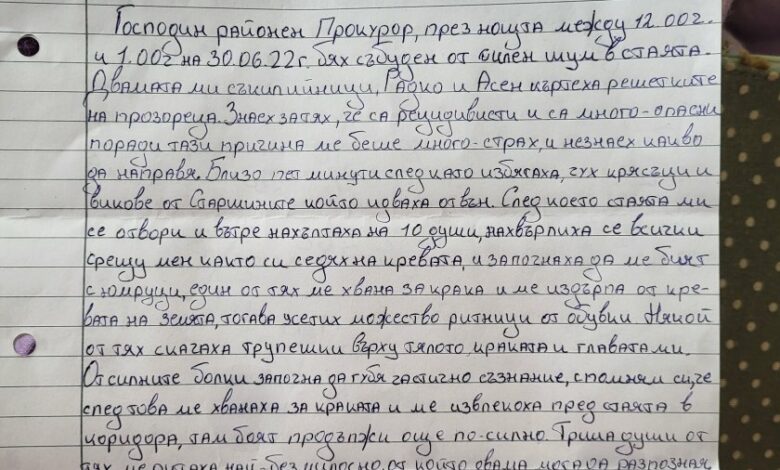 Господин районен Прокурор, през нощта между 12.00г.
и 1.00г на 30.06.22г. бях събуден от силен шум в стаята.
Двамата ми съкилийници, Радко и Асен къртеха решетките
на прозореца. Знаех за тях, че са рецидивисти и са много-опасни
поради тази причина ме беше много-страх, и незнаех какво
да направя. Близо пет минути след като избягаха, чух крясъци и
викове от Старшините който идваха отвън. След което стаята ми
се отвори и вътре нахълтаха на 10 души, нахвърлиха се всички
срещу мен както си седях на кревата, и започнаха да ме бият
с юмруци, един от тях ме хвана за крака и ме издърпа от кре-
вата на земята, тогава усетих множество ритници от обувки. Някой
от тях скачаха трупешки върху тялото, краката и главата ми.
От силните болки започна да губя частично съзнание, спомням си, че
след това ме хванаха за краката и ме извлекоха пред стаята в
коридора, там боят продължи още по-силно. Трима души от
тях ме ритаха най-безмилосно, от който двама мога да разпозная,